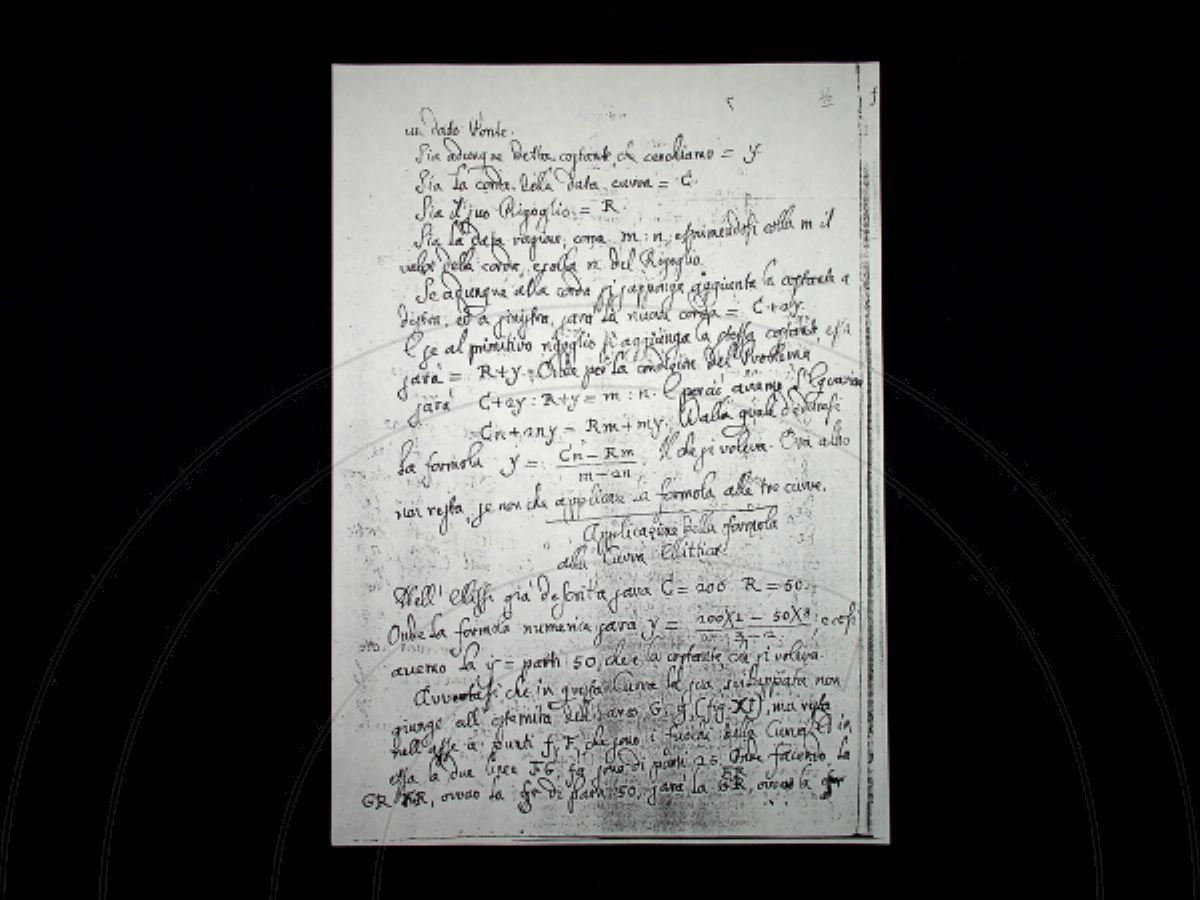 un dato Ponte.
Sia adunque detta costante, che cerchiamo = y
Sia la corda della data curva = C.
Sia il suo Rigoglio = R.
Sia la data ragione, come m : n, esprimendosi colla m il
valor della corda, e colla n del Rigoglio.
Se adunque alla corda si supponga aggiunta la costante a
destra, ed a sinistra, sarà la nuova corda = C+2y.
E se al primitivo rigoglio si aggiunga la detta costante, essa
sarà = R+y. Onde per la condizione del Problema
sarà C+2y : R+y = m : n. E perciò avremo l'Equazione
Cn + 2ny = Rm + my. Dalla quale deducesi
la formola y = Cn - Rm / m - 2n. Il che si voleva. Ora altro
non resta, se non che applicare la formola alle tre curve.
Applicazione della formola
alla Curva Ellittica.
Nell' Elissi già descritta sara C = 200. R = 50.
Onde la formola numerica sara y = 200X1 - 50X3 / 3 - 2 e così
avremo la y = parti 50, che è la costante che si voleva.
Avvertasi che in questa Curva la sua sviluppata non
giunge all' estremità dell' asse G, g, (fig. XI), ma resta
nell' asse a' punti f, F, che sono i fuochi della Curva. Ed in
essa le due linee FG, fg sono di parti 25. Onde facendo la
GR, ovvero la gr di parti 50, sarà la FR, ovvero la fr